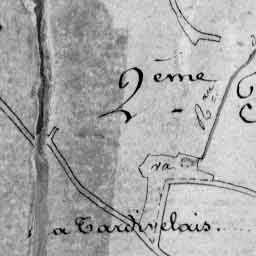 2.ème
va
la Tardivelais.